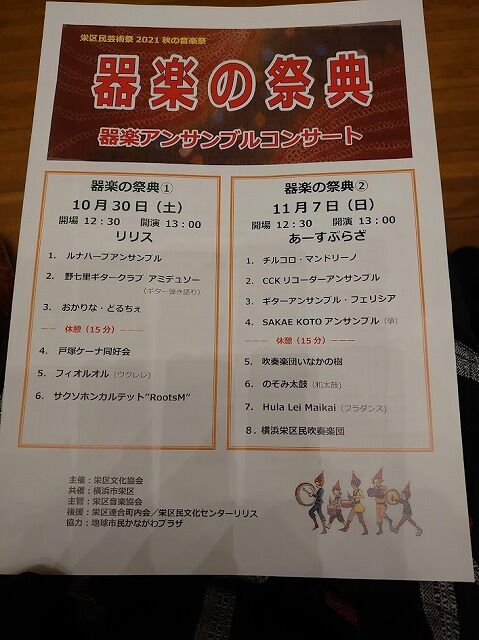 栄区民芸術祭 2021 秋の音楽祭
器楽の祭典
器楽アンサンブルコンサート
器楽の祭典①
10月30日（土）
開場 12：30　開演 13：00
リリス
1. ルナハープアンサンブル
2. 野七里ギタークラブ アミデュソー
（ギター弾き語り）
3. おかりな・どるちぇ
－－ 休憩（15分）－－－
4. 戸塚ケーナ同好会
5. フィオルオル（ウクレレ）
6. サクソホンカルテット"RootsM"
器楽の祭典②
11月7日（日）
開場 12：30　開演 13：00
あーすぷらざ
1. チルコロ・マンドリーノ
2. CCK リコーダーアンサンブル
3. ギターアンサンブル・フェリシア
4. SAKAE KOTO アンサンブル（箏）
－－ 休憩（15分）－－－
5. 吹奏楽団いなかの樹
6. のぞみ太鼓（和太鼓）
7. Hula Lei Maikai（フラダンス）
8. 横浜栄区民吹奏楽団
主催：栄区文化協会
共催：横浜市栄区
主管：栄区音楽協会
後援：栄区連合町内会／栄区民文化センターリリス
協力：地球市民かながわプラザ